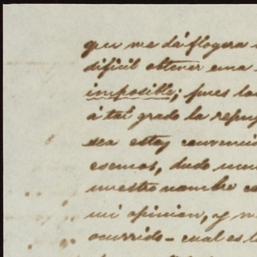 que me dá flogera
dificil obtener una
imposible; pues la
á tal grado la repug
sea estoy convenci
esemos, dudo muc
nuestro nombre co
mi opinion, y m
ocurrido - cual es l